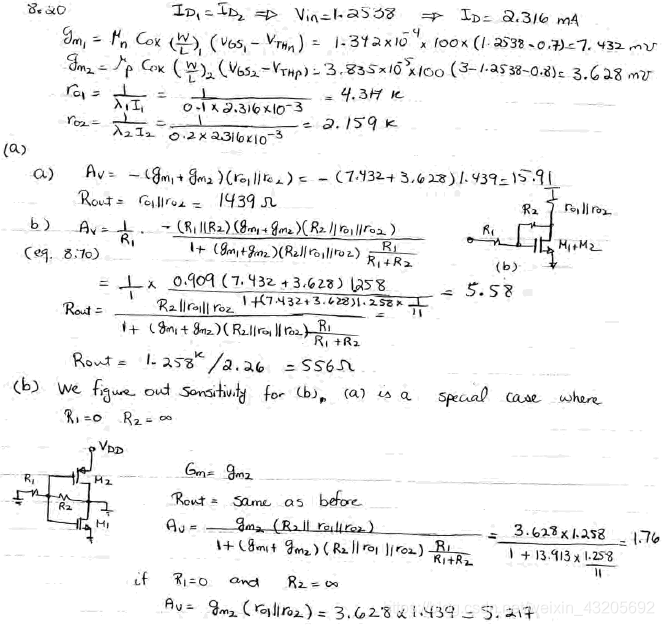 8.20 I_D1 = I_D2 ⇒ Vin = 1.2538 ⇒ I_D = 2.316 mA
g_m1 = μn Cox (W/L)_1 (V_GS1 - V_THn) = 1.342×10^-4 × 100 × (1.2538 - 0.7) = 7.432 mʊ
g_m2 = μp Cox (W/L)_2 (V_GS2 - V_THp) = 3.835×10^-5 × 100 (3 - 1.2538 - 0.8) = 3.628 mʊ
r_o1 = 1/(λ1 I1) = 1/(0.1 × 2.316×10^-3) = 4.317 K
r_o2 = 1/(λ2 I2) = 1/(0.2 × 2.316×10^-3) = 2.159 K
(a)
a) Av = -(g_m1 + g_m2)(r_o1||r_o2) = -(7.432 + 3.628) 1.439 = 15.91
Rout = r_o1||r_o2 = 1439 Ω
R1 R2 r_o1||r_o2 M1+M2
(b)
b) Av = 1/R1 · -(R1||R2)(g_m1+g_m2)(R2||r_o1||r_o2) / (1 + (g_m1+g_m2)(R2||r_o1||r_o2) R1/(R1+R2))
(eq. 8.70)
= 1/1 × 0.909 (7.432 + 3.628) 1.258 / (1 + (7.432 + 3.628) 1.258 × 1/11) = 5.58
Rout = R2||r_o1||r_o2 / (1 + (g_m1 + g_m2)(R2||r_o1||r_o2) R1/(R1+R2)) =
Rout = 1.258^K / 2.26 = 556 Ω
(b) We figure out sensitivity for (b), (a) is a special case where
R1=0 R2 = ∞
VDD
R1 R2 M2 M1
Gm = g_m2
Rout = same as before
Av = g_m2 (R2||r_o1||r_o2) / (1 + (g_m1 + g_m2)(R2||r_o1||r_o2) R1/(R1+R2)) = 3.628 × 1.258 / (1 + 13.913 × 1.258/11) = 1.76
if R1=0 and R2 = ∞
Av = g_m2 (r_o1||r_o2) = 3.628 × 1.439 = 5.217